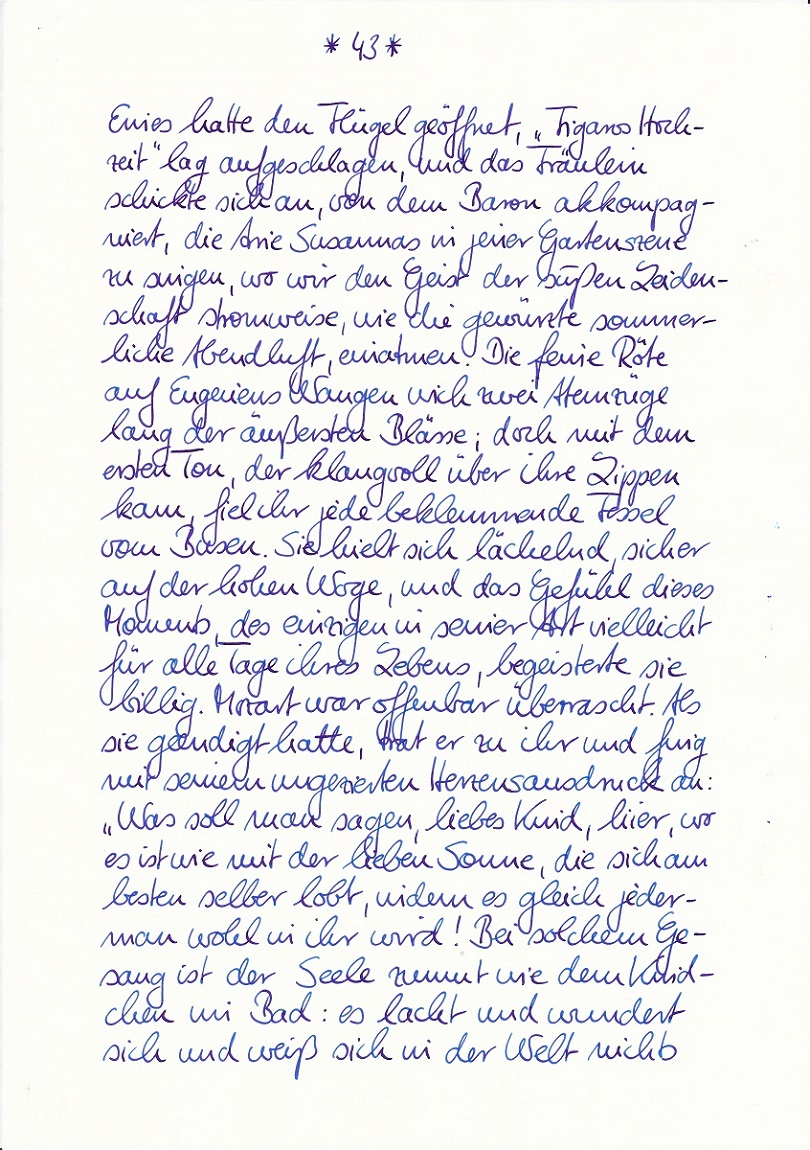 * 43 *
Eines hatte den Flügel geöffnet, „Figaros Hoch-
zeit" lag aufgeschlagen, und das Fräulein
schickte sich an, von dem Baron akkompag-
niert, die Arie Susannas in jener Gartenszene
zu singen, wo wir den Geist der süßen Leiden-
schaft stromweise, wie die gewürzte sommer-
liche Abendluft, einatmen. Die feine Röte
auf Eugeniens Wangen wich zwei Atemzüge
lang der äußersten Blässe; doch mit dem
ersten Ton, der klangvoll über ihre Lippen
kam, fiel ihr jede beklemmende Fessel
vom Busen. Sie hielt sich lächelnd, sicher
auf der hohen Woge, und das Gefühl dieses
Moments, des einzigen in seiner Art vielleicht
für alle Tage ihres Lebens, begeisterte sie
billig. Mozart war offenbar überrascht. Als
sie geendigt hatte, trat er zu ihr und fing
mit seinem ungezierten Herzensausdruck an:
„Was soll man sagen, liebes Kind, hier, wo
es ist wie mit der lieben Sonne, die sich am
besten selber lobt, indem es gleich jeder-
man wohl in ihr wird! Bei solchem Ge-
sang ist der Seele zumut wie dem Kind-
chen im Bad: es lacht und wundert
sich und weiß sich in der Welt nichts